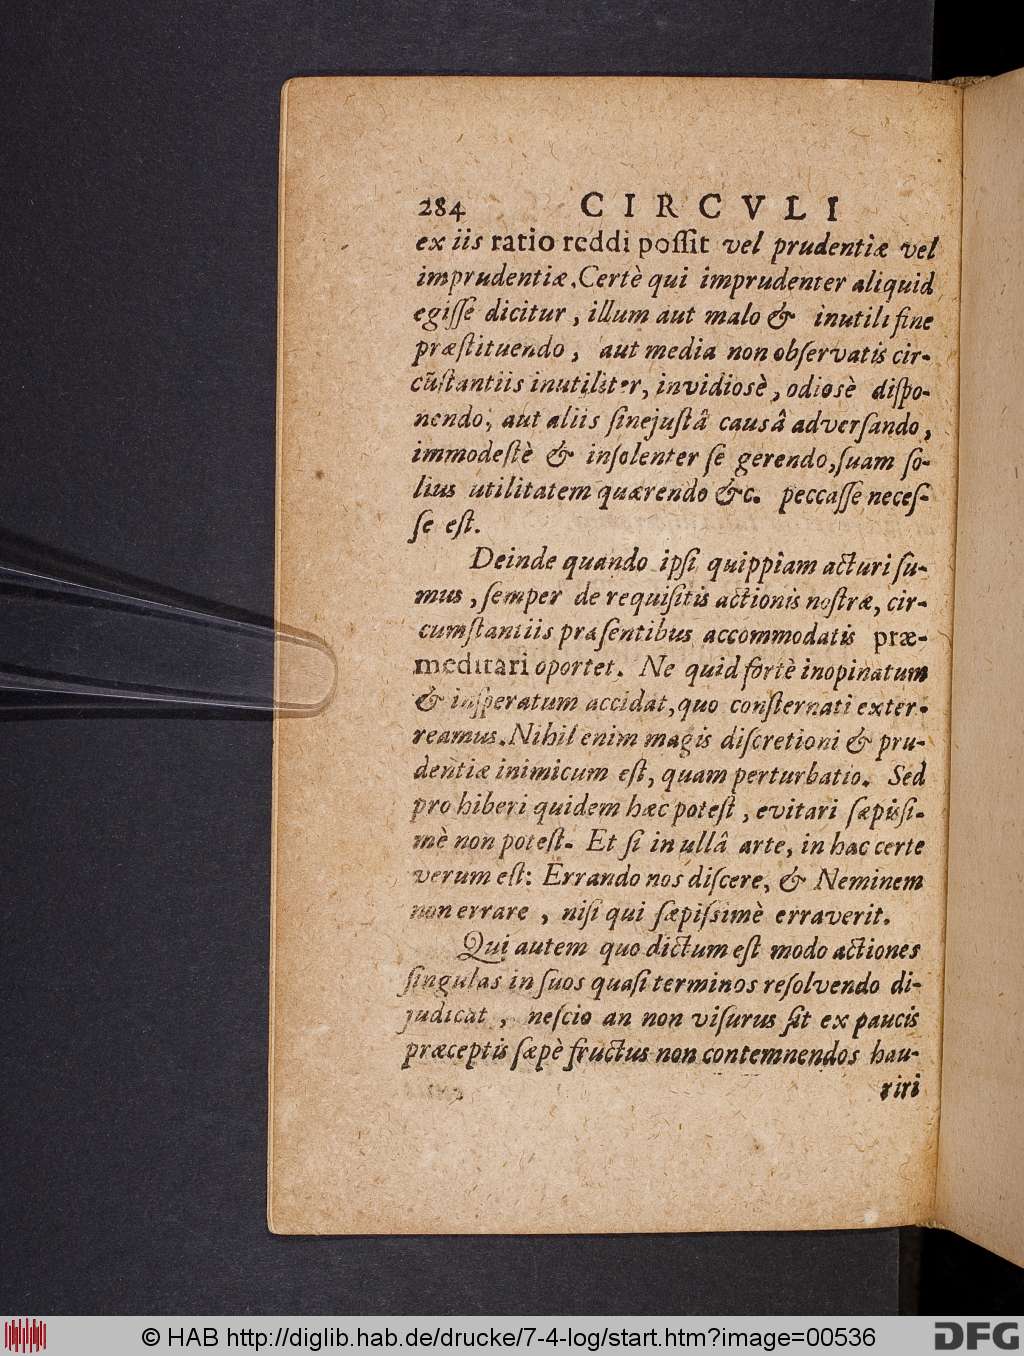 284 CIRCVLI
ex iis ratio reddi poſſit vel prudentiæ vel
imprudentiæ. Certè qui imprudenter aliquid
egiſſe dicitur, illum aut malo & inutili fine
præſtituendo, aut media non obſervatis cir-
cũſtantiis inutiliter, invidiosè, odiosè diſpo-
nendo, aut aliis ſine juſtâ causâ adverſando,
immodeſtè & inſolenter ſe gerendo, ſuam ſo-
lius utilitatem quærendo &c. peccaſſe neceſ-
ſe eſt.
Deinde quando ipſi quippiam acturi ſu-
mus, ſemper de requiſitis actionis noſtræ, cir-
cumſtantiis præſentibus accommodatis præ-
meditari oportet. Ne quid fortè inopinatum
& inſperatum accidat, quo conſternati exter-
reamus. Nihil enim magis diſcretioni & pru-
dentiæ inimicum eſt, quam perturbatio. Sed
prohiberi quidem hæc poteſt, evitari ſæpiſſi-
mè non poteſt. Et ſi in ullâ arte, in hac certe
verum eſt: Errando nos diſcere, & Neminem
non errare, niſi qui ſæpiſsimè erraverit.
Qui autem quo dictum eſt modo actiones
ſingulas in ſuos quaſi terminos reſolvendo di-
judicat, neſcio an non viſurus ſit ex paucis
præceptis ſæpè fructus non contemnendos hau-
riri
© HAB http://diglib.hab.de/drucke/7-4-log/start.htm?image=00536
DFG